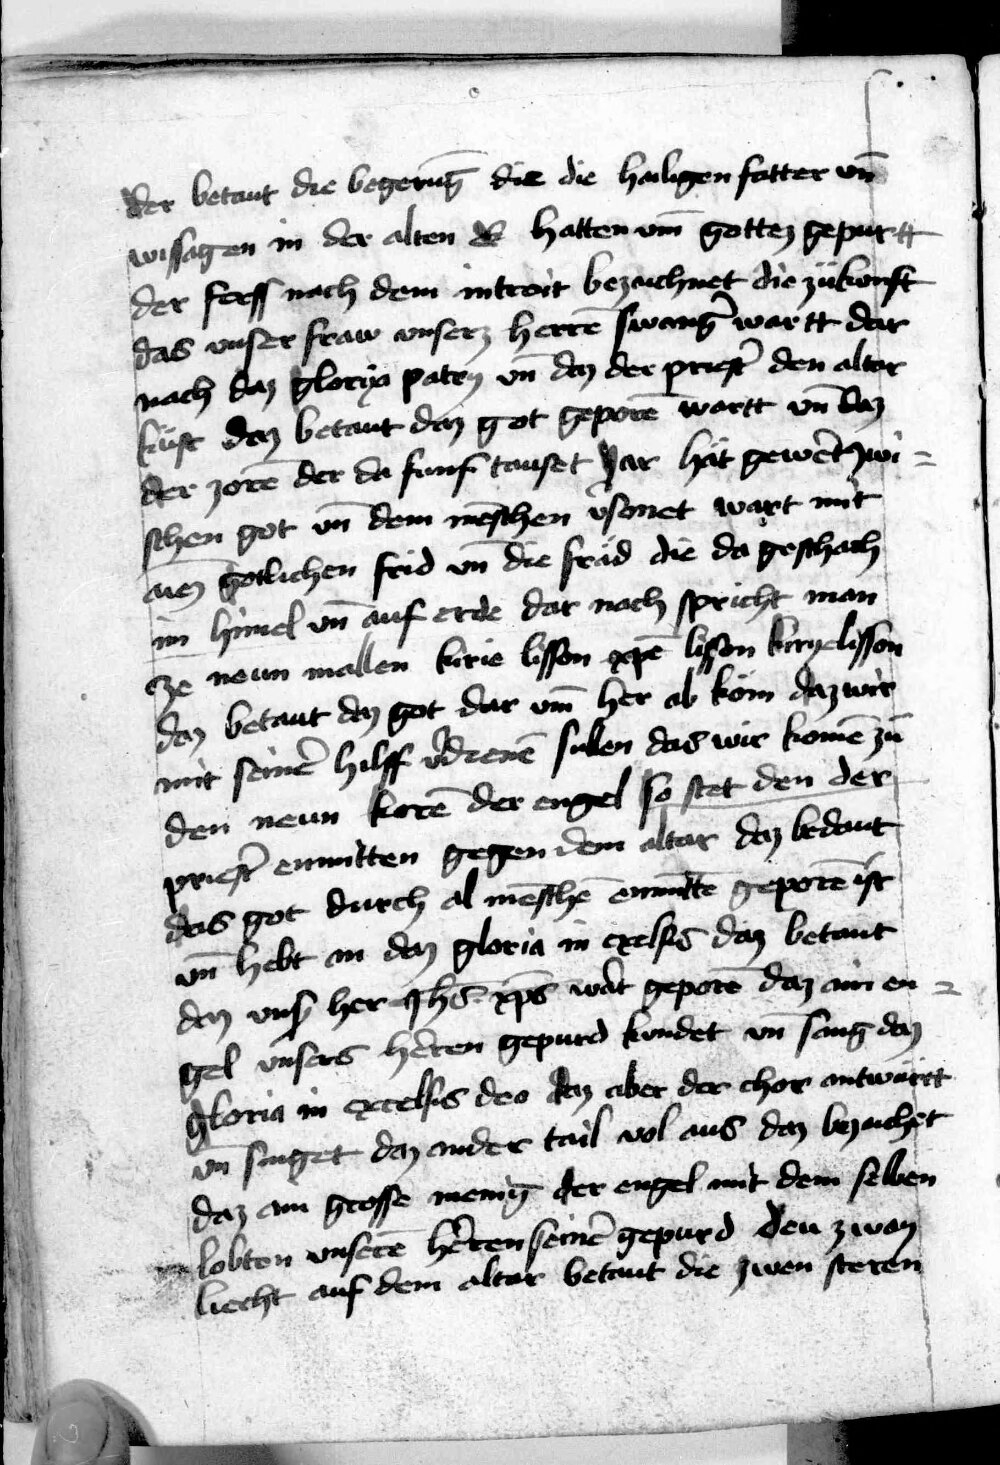 der betaut die begerūg die die hailigen fatter vn̄
wissagen in der alten E hatten vm̄ gottez gepurtt
der ferss nach dem introit bezaichnet die zükunft
das vnser fraw vnserz herrē swanger wartt dar
nach daz glorya patry vn̄ daz der priester den altar
küst daz betaut daz got geporē wartt vn̄ daz
der zorē der da funf tauset Jar hät gewert zwi =
schen got vn̄ dem mēschen vsonet wart mit
aim gotlichen frid vn̄ die fräd die da geschach
im himel vn̄ auf erde dar nach spricht man
ze neun mallen kirie lisson xpē lisson kiryelisson
daz betaut daz got dar vm̄ her ab köm daz wir
mit seiner hilff vdienē sullen das wir komē zü
den neun korē der engel so stet den der
priester enmitten gegen dem altar daz bedaut
das got durch al mēschē enmittē geporē ist
vn̄ hebt an daz gloria in exelsis daz betaut
daz vnser her Jhs xps wart geporē daz ain en =
gel vnsers herren gepurd kundet vn̄ sang daz
gloria in excelsis deo daz aber der chor antwürtt
vn̄ singet daz ander tail vol aus daz bezaichet
daz ain grosse menig der engel mit dem selben
lobton vnserē herren seiner gepurd den zway
liecht auf dem altar betaut die zwen steren